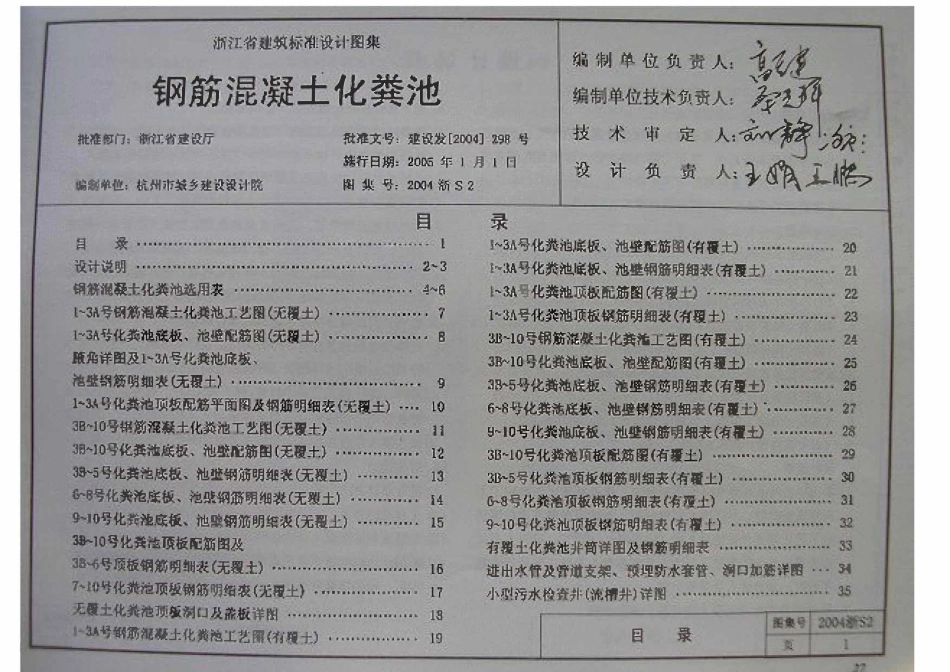 浙江省建筑标准设计图集
钢筋混凝土化粪池
批准部门：浙江省建设厅
批准文号：建设发[2004] 298 号
施行日期：2005 年 1 月 1 日
编制单位：杭州市城乡建设设计院
图 集 号：2004 浙 S 2
编 制 单 位 负 责 人：
编制单位技术负责人：
技 术 审 定 人：
设 计 负 责 人：
目 录
目 录 …… 1
设计说明 …… 2~3
钢筋混凝土化粪池选用表 …… 4~6
1~3A号钢筋混凝土化粪池工艺图(无覆土) …… 7
1~3A号化粪池底板、池壁配筋图(无覆土) …… 8
腋角详图及1~3A号化粪池底板、
池壁钢筋明细表(无覆土) …… 9
1~3A号化粪池顶板配筋平面图及钢筋明细表(无覆土) …… 10
3B~10号钢筋混凝土化粪池工艺图(无覆土) …… 11
3B~10号化粪池底板、池壁配筋图(无覆土) …… 12
3B~5号化粪池底板、池壁钢筋明细表(无覆土) …… 13
6~8号化粪池底板、池壁钢筋明细表(无覆土) …… 14
9~10号化粪池底板、池壁钢筋明细表(无覆土) …… 15
3B~10号化粪池顶板配筋图及
3B~6号顶板钢筋明细表(无覆土) …… 16
7~10号化粪池顶板钢筋明细表(无覆土) …… 17
无覆土化粪池顶板洞口及盖板详图 …… 18
1~3A号钢筋混凝土化粪池工艺图(有覆土) …… 19
1~3A号化粪池底板、池壁配筋图(有覆土) …… 20
1~3A号化粪池底板、池壁钢筋明细表(有覆土) …… 21
1~3A号化粪池顶板配筋图(有覆土) …… 22
1~3A号化粪池顶板钢筋明细表(有覆土) …… 23
3B~10号钢筋混凝土化粪池工艺图(有覆土) …… 24
3B~10号化粪池底板、池壁配筋图(有覆土) …… 25
3B~5号化粪池底板、池壁钢筋明细表(有覆土) …… 26
6~8号化粪池底板、池壁钢筋明细表(有覆土) …… 27
9~10号化粪池底板、池壁钢筋明细表(有覆土) …… 28
3B~10号化粪池顶板配筋图(有覆土) …… 29
3B~5号化粪池顶板钢筋明细表(有覆土) …… 30
6~8号化粪池顶板钢筋明细表(有覆土) …… 31
9~10号化粪池顶板钢筋明细表(有覆土) …… 32
有覆土化粪池井筒详图及钢筋明细表 …… 33
进出水管及管道支架、预埋防水套管、洞口加筋详图 … 34
小型污水检查井(流槽井)详图 …… 35
目 录
图集号 2004浙S2
页 1